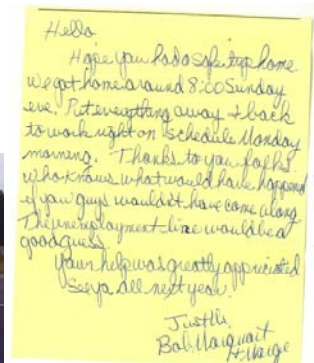 Hello
Hope you had a safe trip home.
We got home around 8:00 Sunday
eve. Put everything away & back
to work right on schedule Monday
morning. Thanks to you folks
who knows what would have happened
if you guys wouldn't have come along
The unemployment line would be a
good guess.
Your help was greatly appreciated
See ya all next year.
Just Us,
Bob Marquart
& Marge